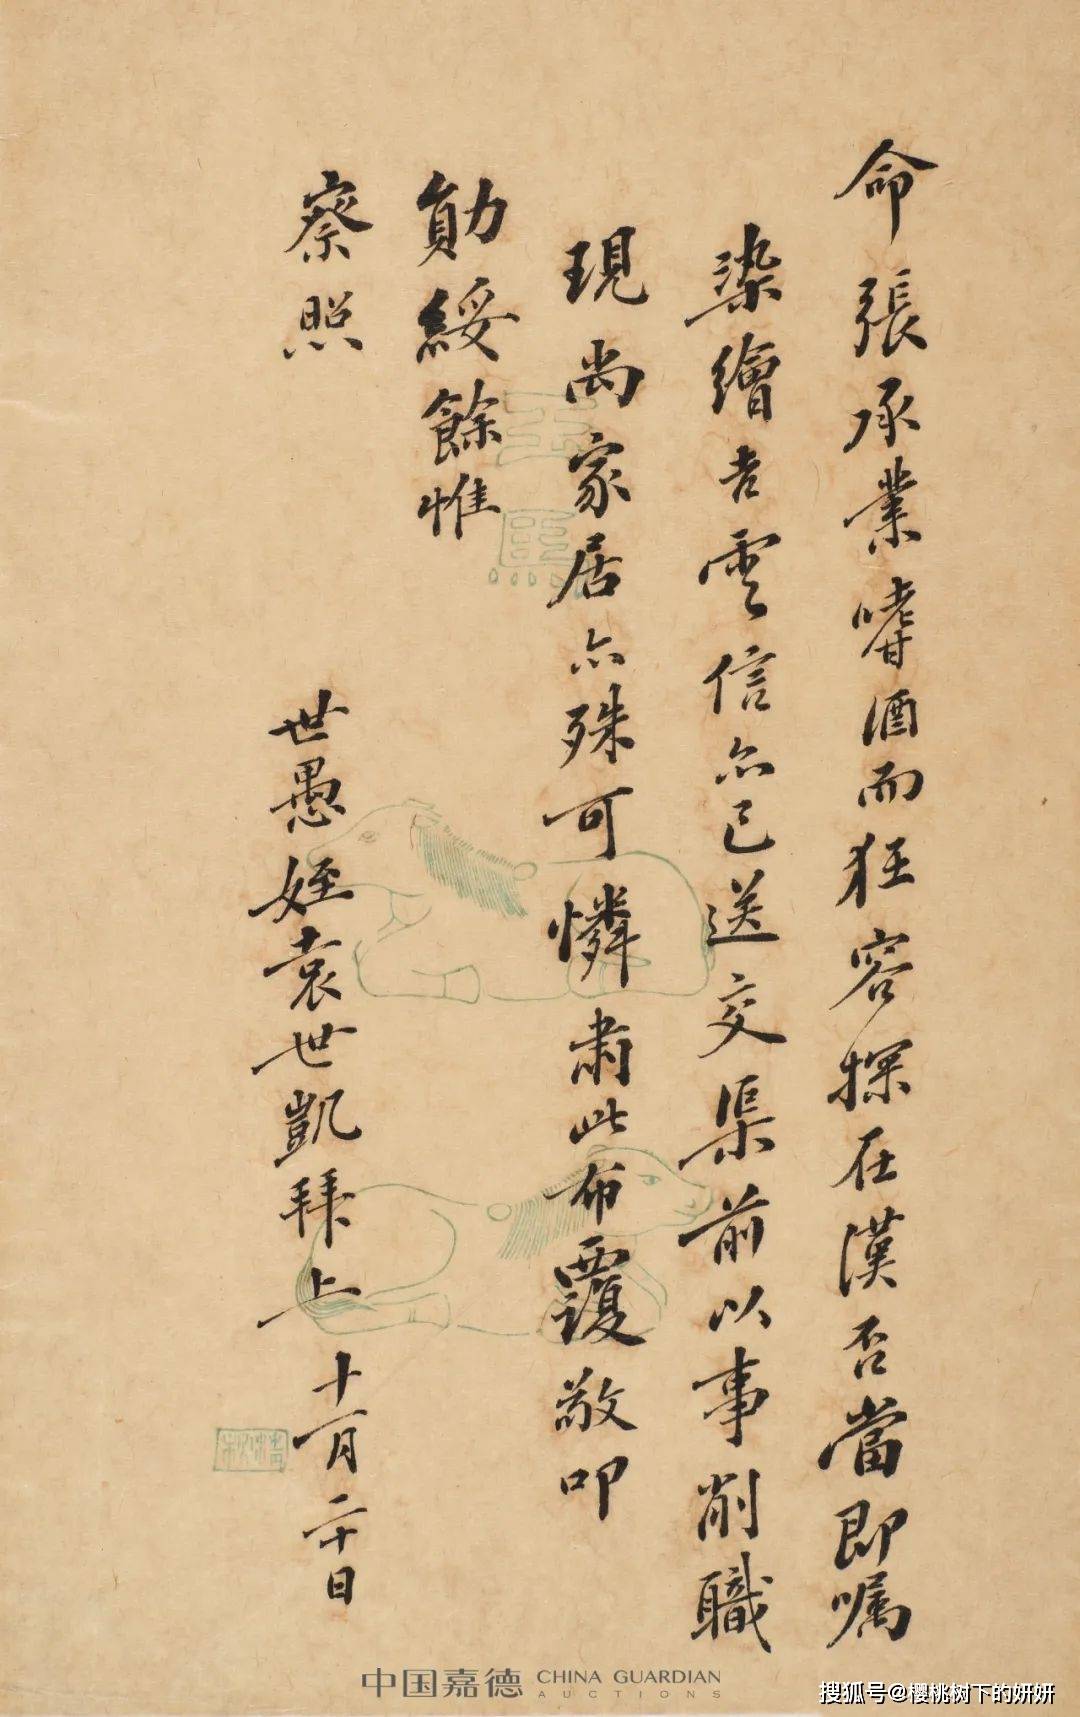 命張承業嗜酒而狂容探在漢否當即囑
染繪吉雲信亦已送交渠前以事削職
現尚家居亦殊可憐肅此布覆敬叩
勛綏餘惟
察照
世愚姪袁世凱拜上 十一月二十日
玉馬
中国嘉德 CHINA GUARDIAN
AUCTIONS
搜狐号@樱桃树下的妍妍